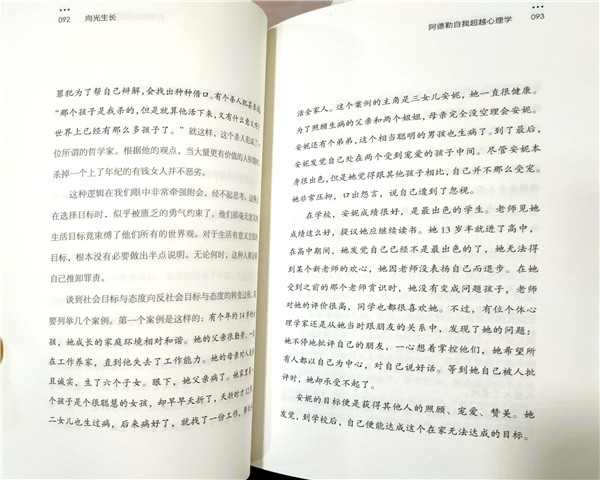 092 向光生长
罪犯为了帮自己辩解，会找出种种借口。有个杀人犯甚至说
“那个孩子是我杀的，但是就算他活下来，又有什么意义呢？
世界上已经有那么多孩子了。”就这样，这个杀人犯成了一
位所谓的哲学家。根据他的观点，当大量更有价值的人
杀掉一个上了年纪的有钱女人并不恶劣。
这种逻辑在我们眼中非常牵强附会，经不起思考。
在选择目标时，似乎被匮乏的勇气约束了，他们那毫无意义的
生活目标竟束缚了他们所有的世界观。对于生活有意义方面的
目标，根本没有必要做出半点说明。无论何时，这种人都
自己推卸罪责。
谈到社会目标与态度向反社会目标与态度的转变过程，
要列举几个案例。第一个案例是这样的：有个年约14岁的
孩，她成长的家庭环境相对和谐。她的父亲很勤劳，一
在工作养家，直到他失去了工作能力。她的母亲对人
且诚实，生了六个子女。眼下，她父亲病了。她家里
个孩子是个很聪慧的女孩，却早早夭折了，夭折时才12
二女儿也生过病，后来病好了，就找了一份工作，
阿德勒自我超越心理学 093
活全家人。这个案例的主角是三女儿安妮，她一直很健康。
为了照顾生病的父亲和两个姐姐，母亲完全没空理会安妮。
安妮还有个弟弟，这个相当聪明的男孩也生病了。到了最后，
安妮发觉自己处在两个受到宠爱的孩子中间。尽管安妮本
身很出色，但是她觉得跟其他孩子相比，自己并不那么受宠。
她非常压抑，口出怨言，说自己遭到了忽视。
在学校，安妮成绩很好，是最出色的学生。老师见她
成绩这么好，提议她应继续读书。她13岁半就进了高中，
在高中期间，她发觉自己已经不是最出色的了，她无法得
到某个新老师的欢心，她因老师没表扬自己而退步。在她
受到之前的那个老师赏识时，她没有变成问题孩子，老师
对她的评价很高，同学也都很喜欢她。不过，有位个体心
理学家还是从她当时跟朋友的关系中，发现了她的问题：
她不停地批评自己的朋友，一心想着掌控他们，她希望所
有人都以自己为中心，对自己说好话。等到她自己被人批
评时，她却承受不起了。
安妮的目标便是获得其他人的照顾、宠爱、赞美。她
发觉，到学校后，自己便能达成这个在家无法达成的目标。